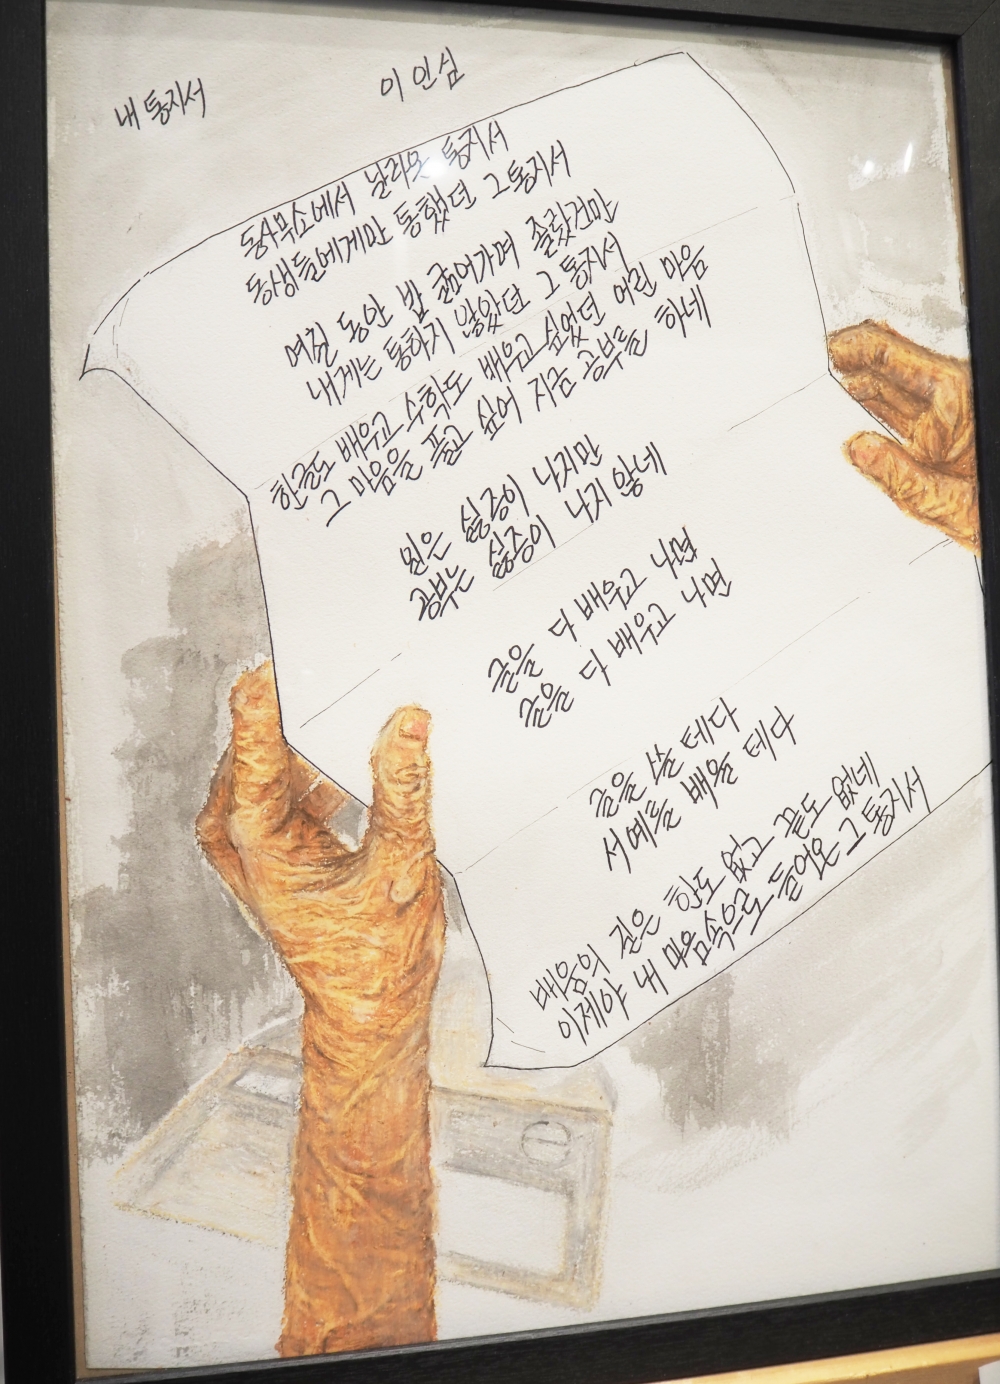 내 통지서
이 인심
동사무소에서 날라온 통지서
동생들에게만 통했던 그 통지서
여길 동안 밥 굶어가며 졸랐건만
내게는 통하지 않았던 그 통지서
한글도 배우고 수학도 배우고 싶었던 어린 마음
그 마음을 풀고 싶어 지금 공부를 하네
일은 싫증이 나지만
공부는 싫증이 나지 않네
글을 다 배우고 나면
글을 다 배우고 나면
글을 쓸 테다
서예를 배울 테다
배움의 길은 한도 없고 끝도 없네
이제야 내 마음속으로 들어온 그 통지서